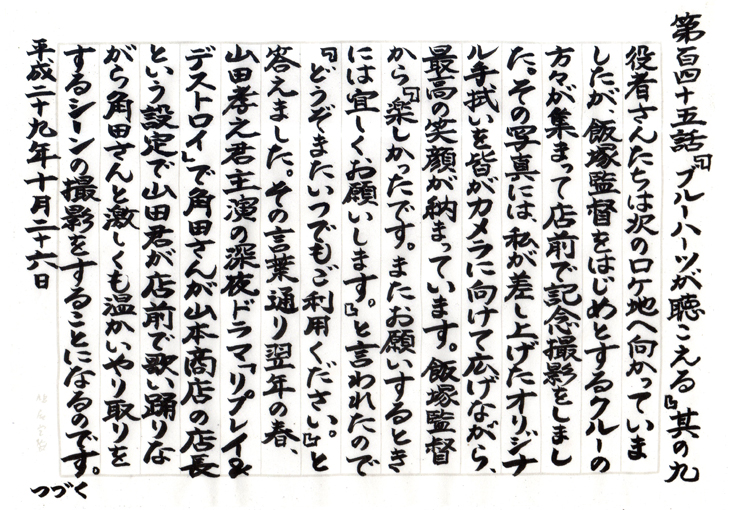 第百四十五話『ブルーハーツが聴こえる』其の九
役者さんたちは次のロケ地へ向かっていま
したが、飯塚監督をはじめとするクルーの
方々が集まって店前で記念撮影をしまし
た。その写真には、私が差し上げたオリジナ
ル手拭いを皆がカメラに向けて広げながら、
最高の笑顔が納まっています。飯塚監督
から『楽しかったです。またお願いするとき
には宜しくお願いします。』と言われたので
『どうぞまたいつでもご利用ください。』と
答えました。その言葉通り翌年の春、
山田孝之君主演の深夜ドラマ「リプレイ&
デストロイ」で角田さんが山本商店の店長
という設定で山田君が店前で歌い踊りな
がら角田さんと激しくも温かいやり取りを
するシーンの撮影をすることになるのです。
平成二十九年十月二十六日
つづく